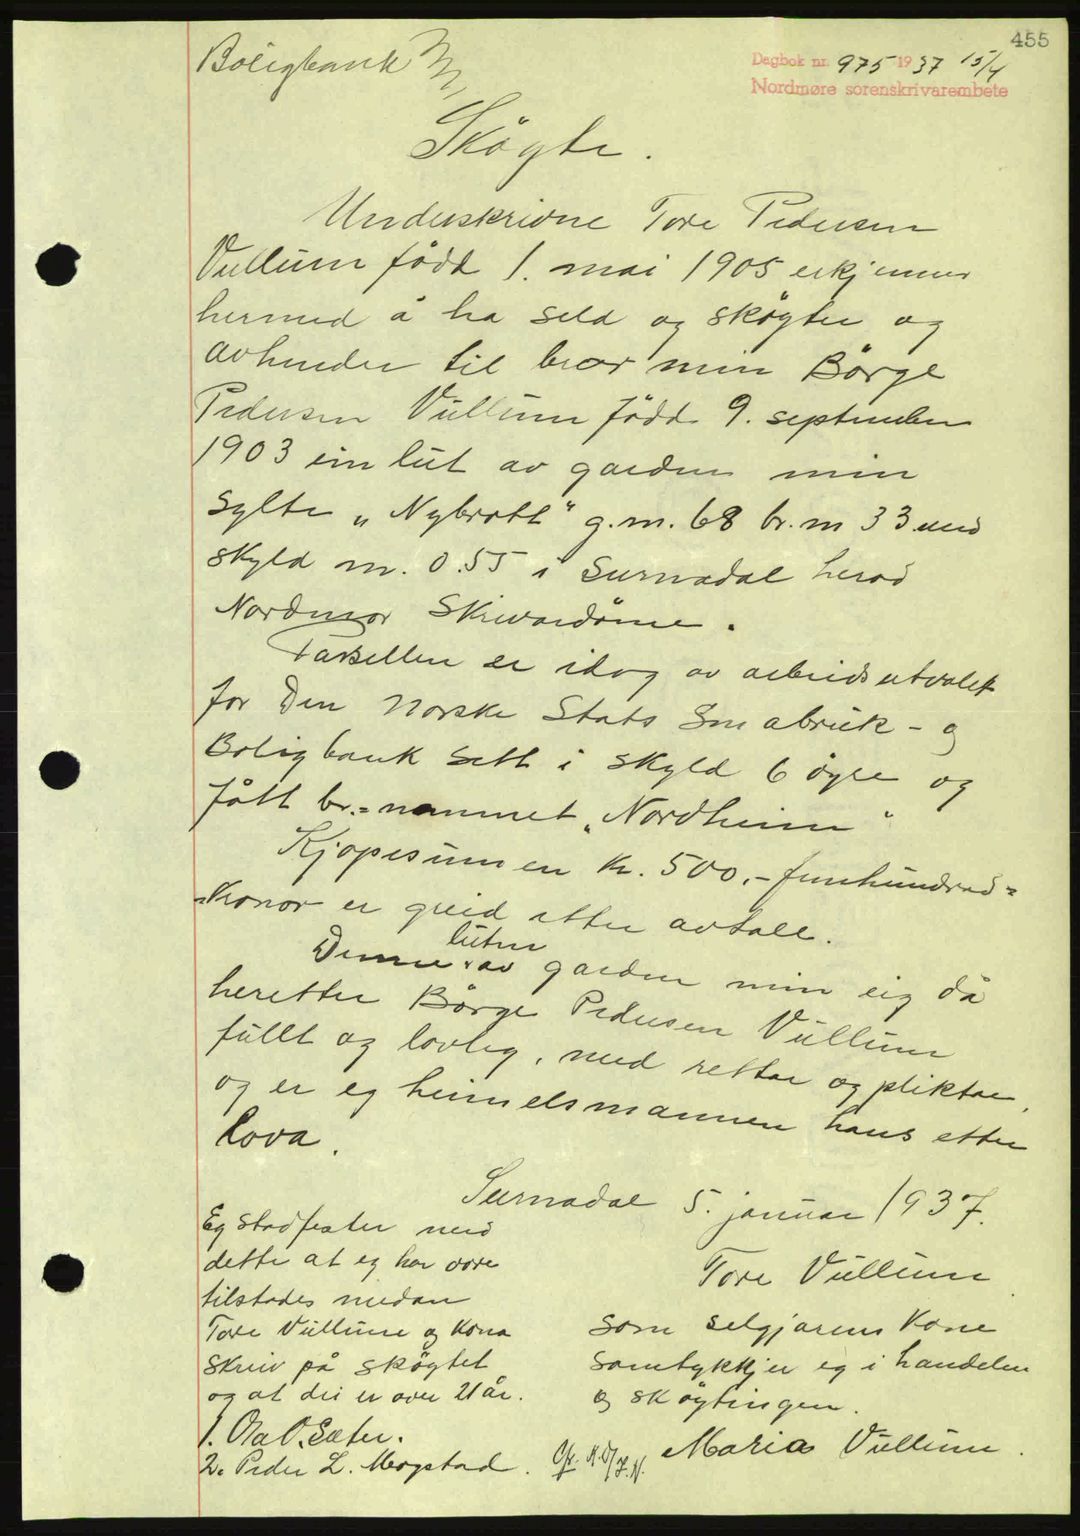 455
Boligbank
Dagbok nr. 975 1937 15/4
Nordmøre sorenskrivarembete
Skøgte.
Underskrivne Tore Pedersen
Vullum född 1. mai 1905 erkjenner
hermed å ha seld og skøgter og
avhender til bror min Börge
Pedersen Vullum född 9. september
1903 ein lut av garden min
Sylte „Nybrott" g.m. 68 br.m 33 med
skyld m. 0.55 i Surnadal herad
Nordmør Skrivardöme.
Parsellen er idag av arbeidsutvalet
for Den Norske Stats Småbruk- og
Boligbank sett i skyld 6 öyre og
fått br.=nammet „Nordheim"
Kjöpesumen kr. 500,- femhundrad=
=kronor er greid etter avtale.
Denne luten av garden min eig då
heretter Börge Pedersen Vullum
fullt og lovleg, med rettar og pliktar,
og er eg heimelsmannen hans etter
lova.
Surnadal 5. januar 1937.
Tore Vullum
Eg stadfester med
dette at eg har vore
tilstades medan
Tore Vullum og kona
skreiv på skøgtet
og at dei er over 21 år.
1. Ola O. Sæter.
2. Peder L. Mogstad.
Som selgjarens kone
samtykkjer eg i handelen
og skøgtingen.
Maria Vullum.